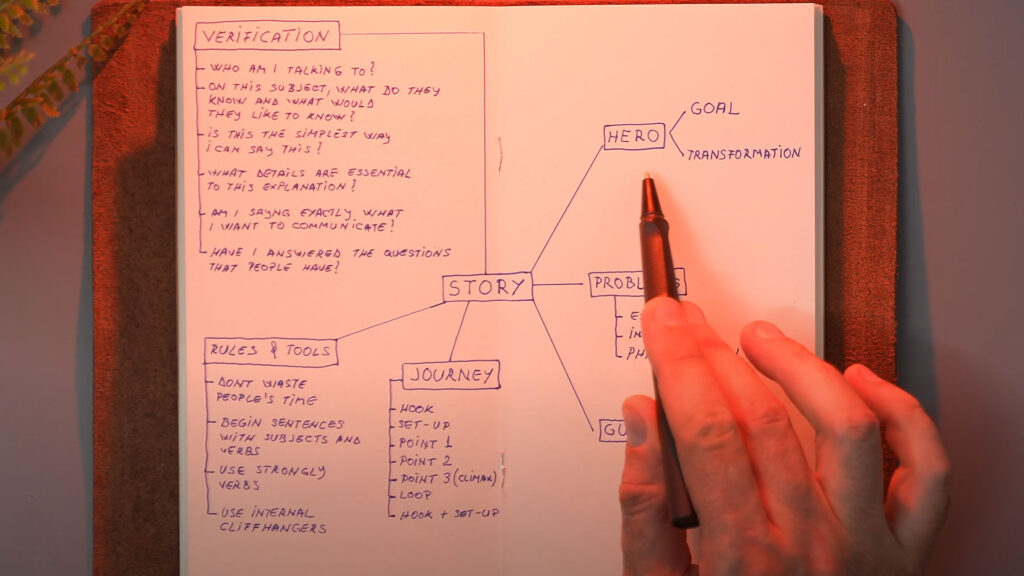 VERIFICATION
WHO AM I TALKING TO?
ON THIS SUBJECT, WHAT DO THEY
KNOW AND WHAT WOULD
THEY LIKE TO KNOW?
IS THIS THE SIMPLEST WAY
I CAN SAY THIS?
WHAT DETAILS ARE ESSENTIAL
TO THIS EXPLANATION?
AM I SAYNG EXACTLY WHAT
I WANT TO COMMUNICATE?
HAVE I ANSWERED THE QUESTIONS
THAT PEOPLE HAVE?
STORY
HERO
GOAL
TRANSFORMATION
RULES & TOOLS
DONT WASTE
PEOPLE'S TIME
BEGIN SENTENCES
WITH SUBJECTS AND
VERBS
USE STRONGLY
VERBS
USE INTERNAL
CLIFFHANGERS
JOURNEY
HOOK
SET-UP
POINT 1
POINT 2
POINT 3 (CLIMAX)
LOOP
HOOK + SET-UP